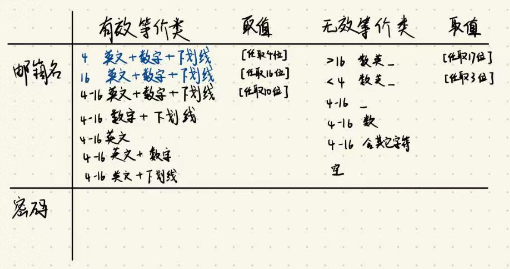 有效等价类 取值 无效等价类 取值
邮箱名
4 英文+数字+下划线 [任取4位] >16 数英_ [任取17位]
16 英文+数字+下划线 [任取16位] <4 数英_ [任取3位]
4-16 英文+数字+下划线 [任取10位] 4-16 _
4-16 数字+下划线 4-16 数
4-16 英文 4-16 含其它字符
4-16 英文+数字 空
4-16 英文+下划线
密码